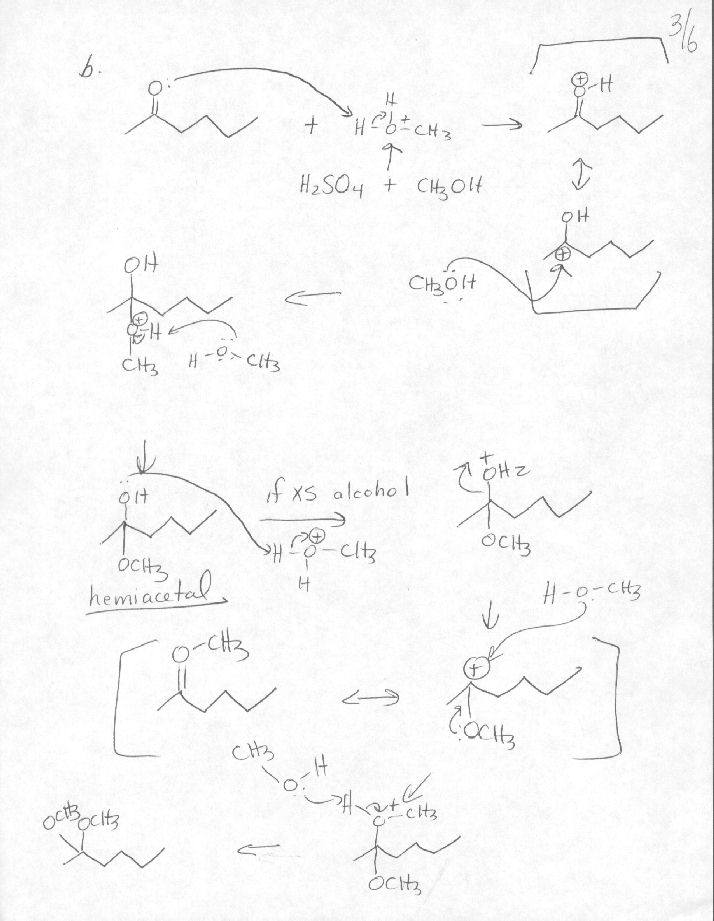 3/6
b.
O:
H
+ H-O-CH3
+
⊕
O-H
H2SO4 + CH3OH
OH
⊕
OH
CH3OH
⊕
O-H
CH3
H-O-CH3
OH
if xs alcohol
+
OH2
⊕
H-O-CH3
H
OCH3
OCH3
hemiacetal
H-O-CH3
O-CH3
⊕
:OCH3
CH3
O H
H + 
O-CH3
OCH3 OCH3
OCH3